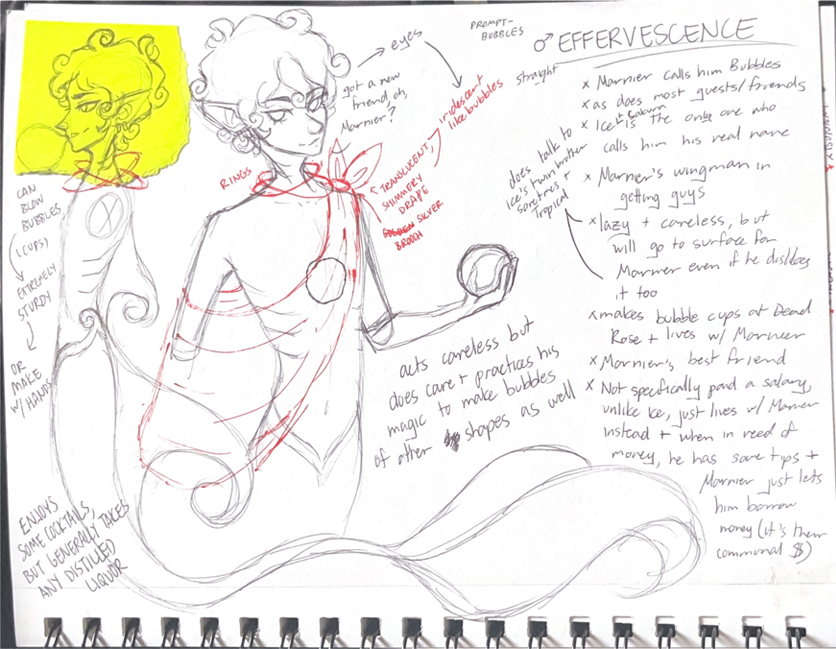 PROMPT-
BUBBLES
♂ EFFERVESCENCE
straight
x Marnier calls him Bubbles
x as does most guests/friends
x Ice is the only one who
calls him his real name
x Marnier's wingman in
getting guys
x lazy + careless, but
will go to surface for
Marnier even if he dislikes
it too
x makes bubble cups at Dead
Rose + lives w/ Marnier
x Marnier's best friend
x Not specifically paid a salary,
unlike Ice, just lives w/ Marnier
instead + when in need of
money, he has some tips +
Marnier just lets
him borrow
money (it's their
communal $)
does talk to
Ice's twin brother
sometimes +
Tropical
got a new
friend, oh,
Marnier?
→ eyes
iridescent
like bubbles
RINGS
TRANSLUCENT,
SHIMMERY
DRAPE
SILVER
BROOCH
CAN
BLOW
BUBBLES
(CUPS)
EXTREMELY
STURDY
OR
MAKE
W/ HANDS
acts careless but
does care + practices his
magic to make bubbles
of other shapes as well
ENJOYS
SOME COCKTAILS,
BUT GENERALLY TAKES
ANY DISTILLED
LIQUOR